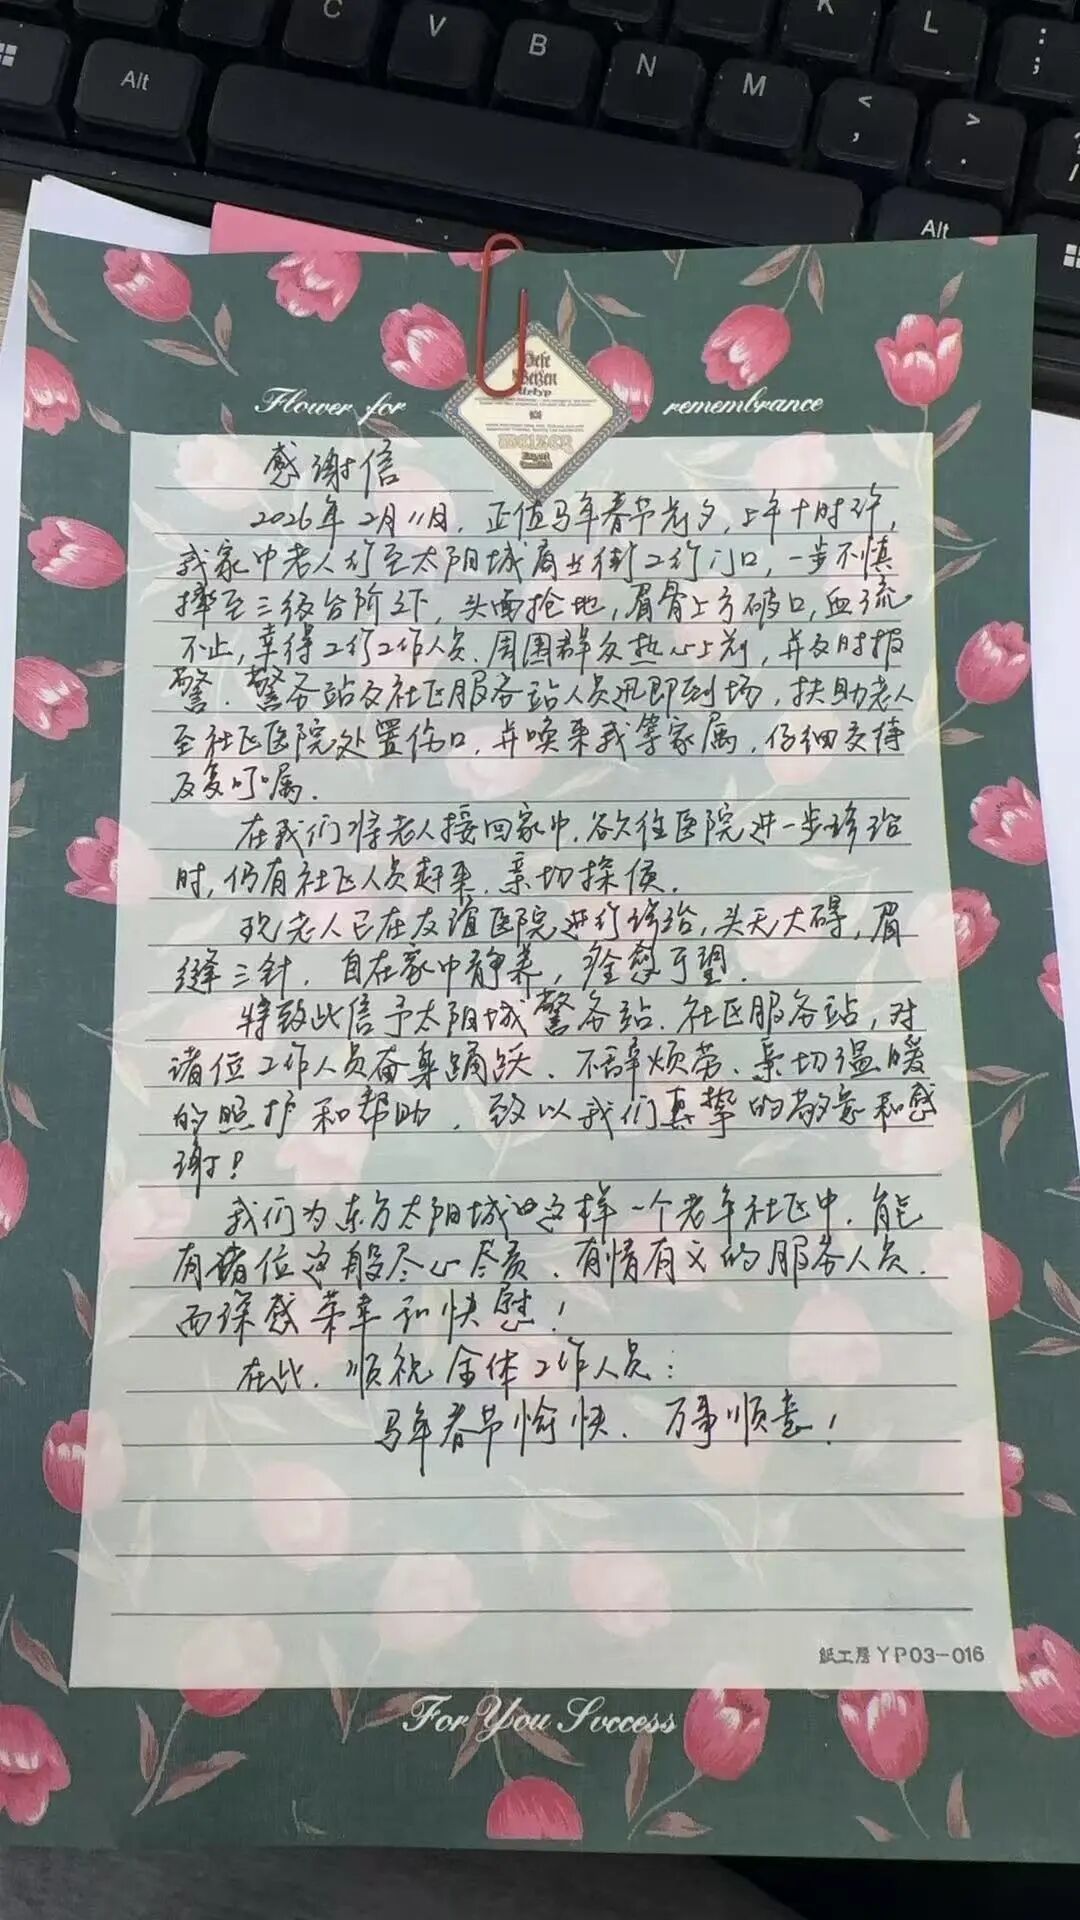 C
V
B
N
M
K
L
:
;
<
,
>
.
Alt
Alt
Flower for
remembrance
感谢信
2026年2月11日，正值马年春节前夕，上午十时许，
我家中老人行至太阳城商业街工行门口，一步不慎
摔至三级台阶之下，头面抢地，眉骨上方破口，血流
不止，幸得工行工作人员、周围群众热心上前，并及时报
警，警务站及社区服务站人员迅即到场，扶助老人
至社区医院处置伤口，并唤来我等家属，仔细交待
反复叮嘱。
在我们将老人接回家中，欲往医院进一步诊治
时，仍有社区人员赶来，亲切探侯。
现老人已在友谊医院进行诊治，头无大碍，眉
缝三针，自在家中静养，痊愈可望。
特致此信予太阳城警务站、社区服务站，对
诸位工作人员奋身踊跃、不辞烦劳、亲切温暖
的照护和帮助，致以我们真挚的敬意和感
谢！
我们为东方太阳城这样一个老年社区中，能
有诸位这般尽心尽责、有情有义的服务人员，
而深感荣幸和快慰！
在此，顺祝全体工作人员：
马年春节愉快、万事顺意！
紙工房 YP03-016
For You Success